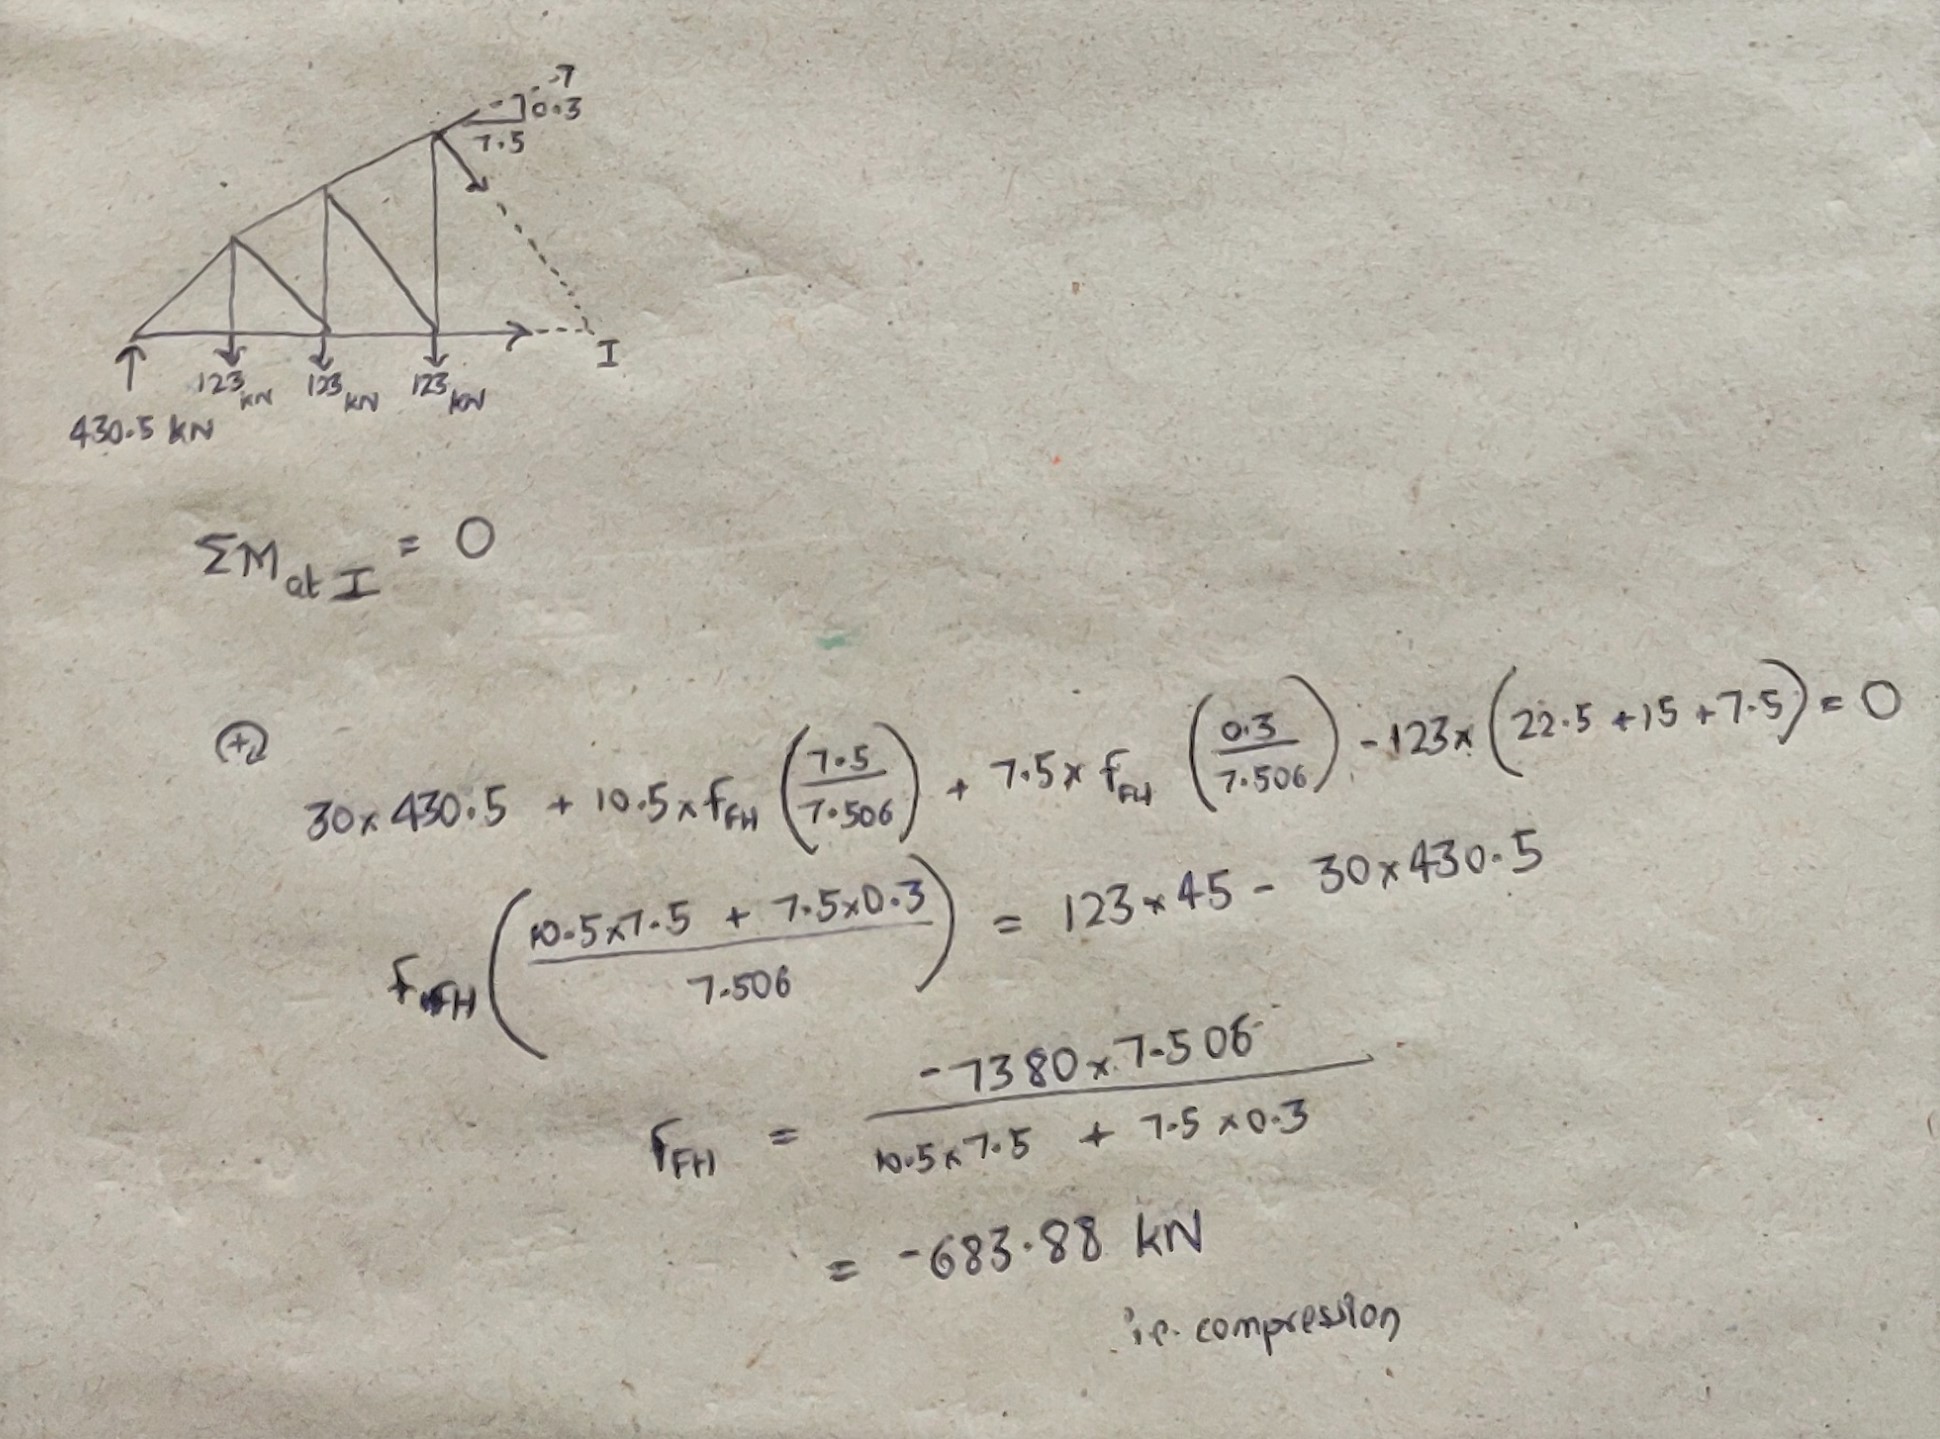 0.3
7.5
I
123 kN 123 kN 123 kN
430.5 kN
ΣM at I = 0
+
30×430.5 + 10.5×f_FH (7.5/7.506) + 7.5×f_FH (0.3/7.506) - 123×(22.5+15+7.5) = 0
f_FH ((10.5×7.5 + 7.5×0.3)/7.506) = 123×45 - 30×430.5
f_FH = (-7380×7.506)/(10.5×7.5 + 7.5×0.3)
= -683.88 kN
i.e. compression